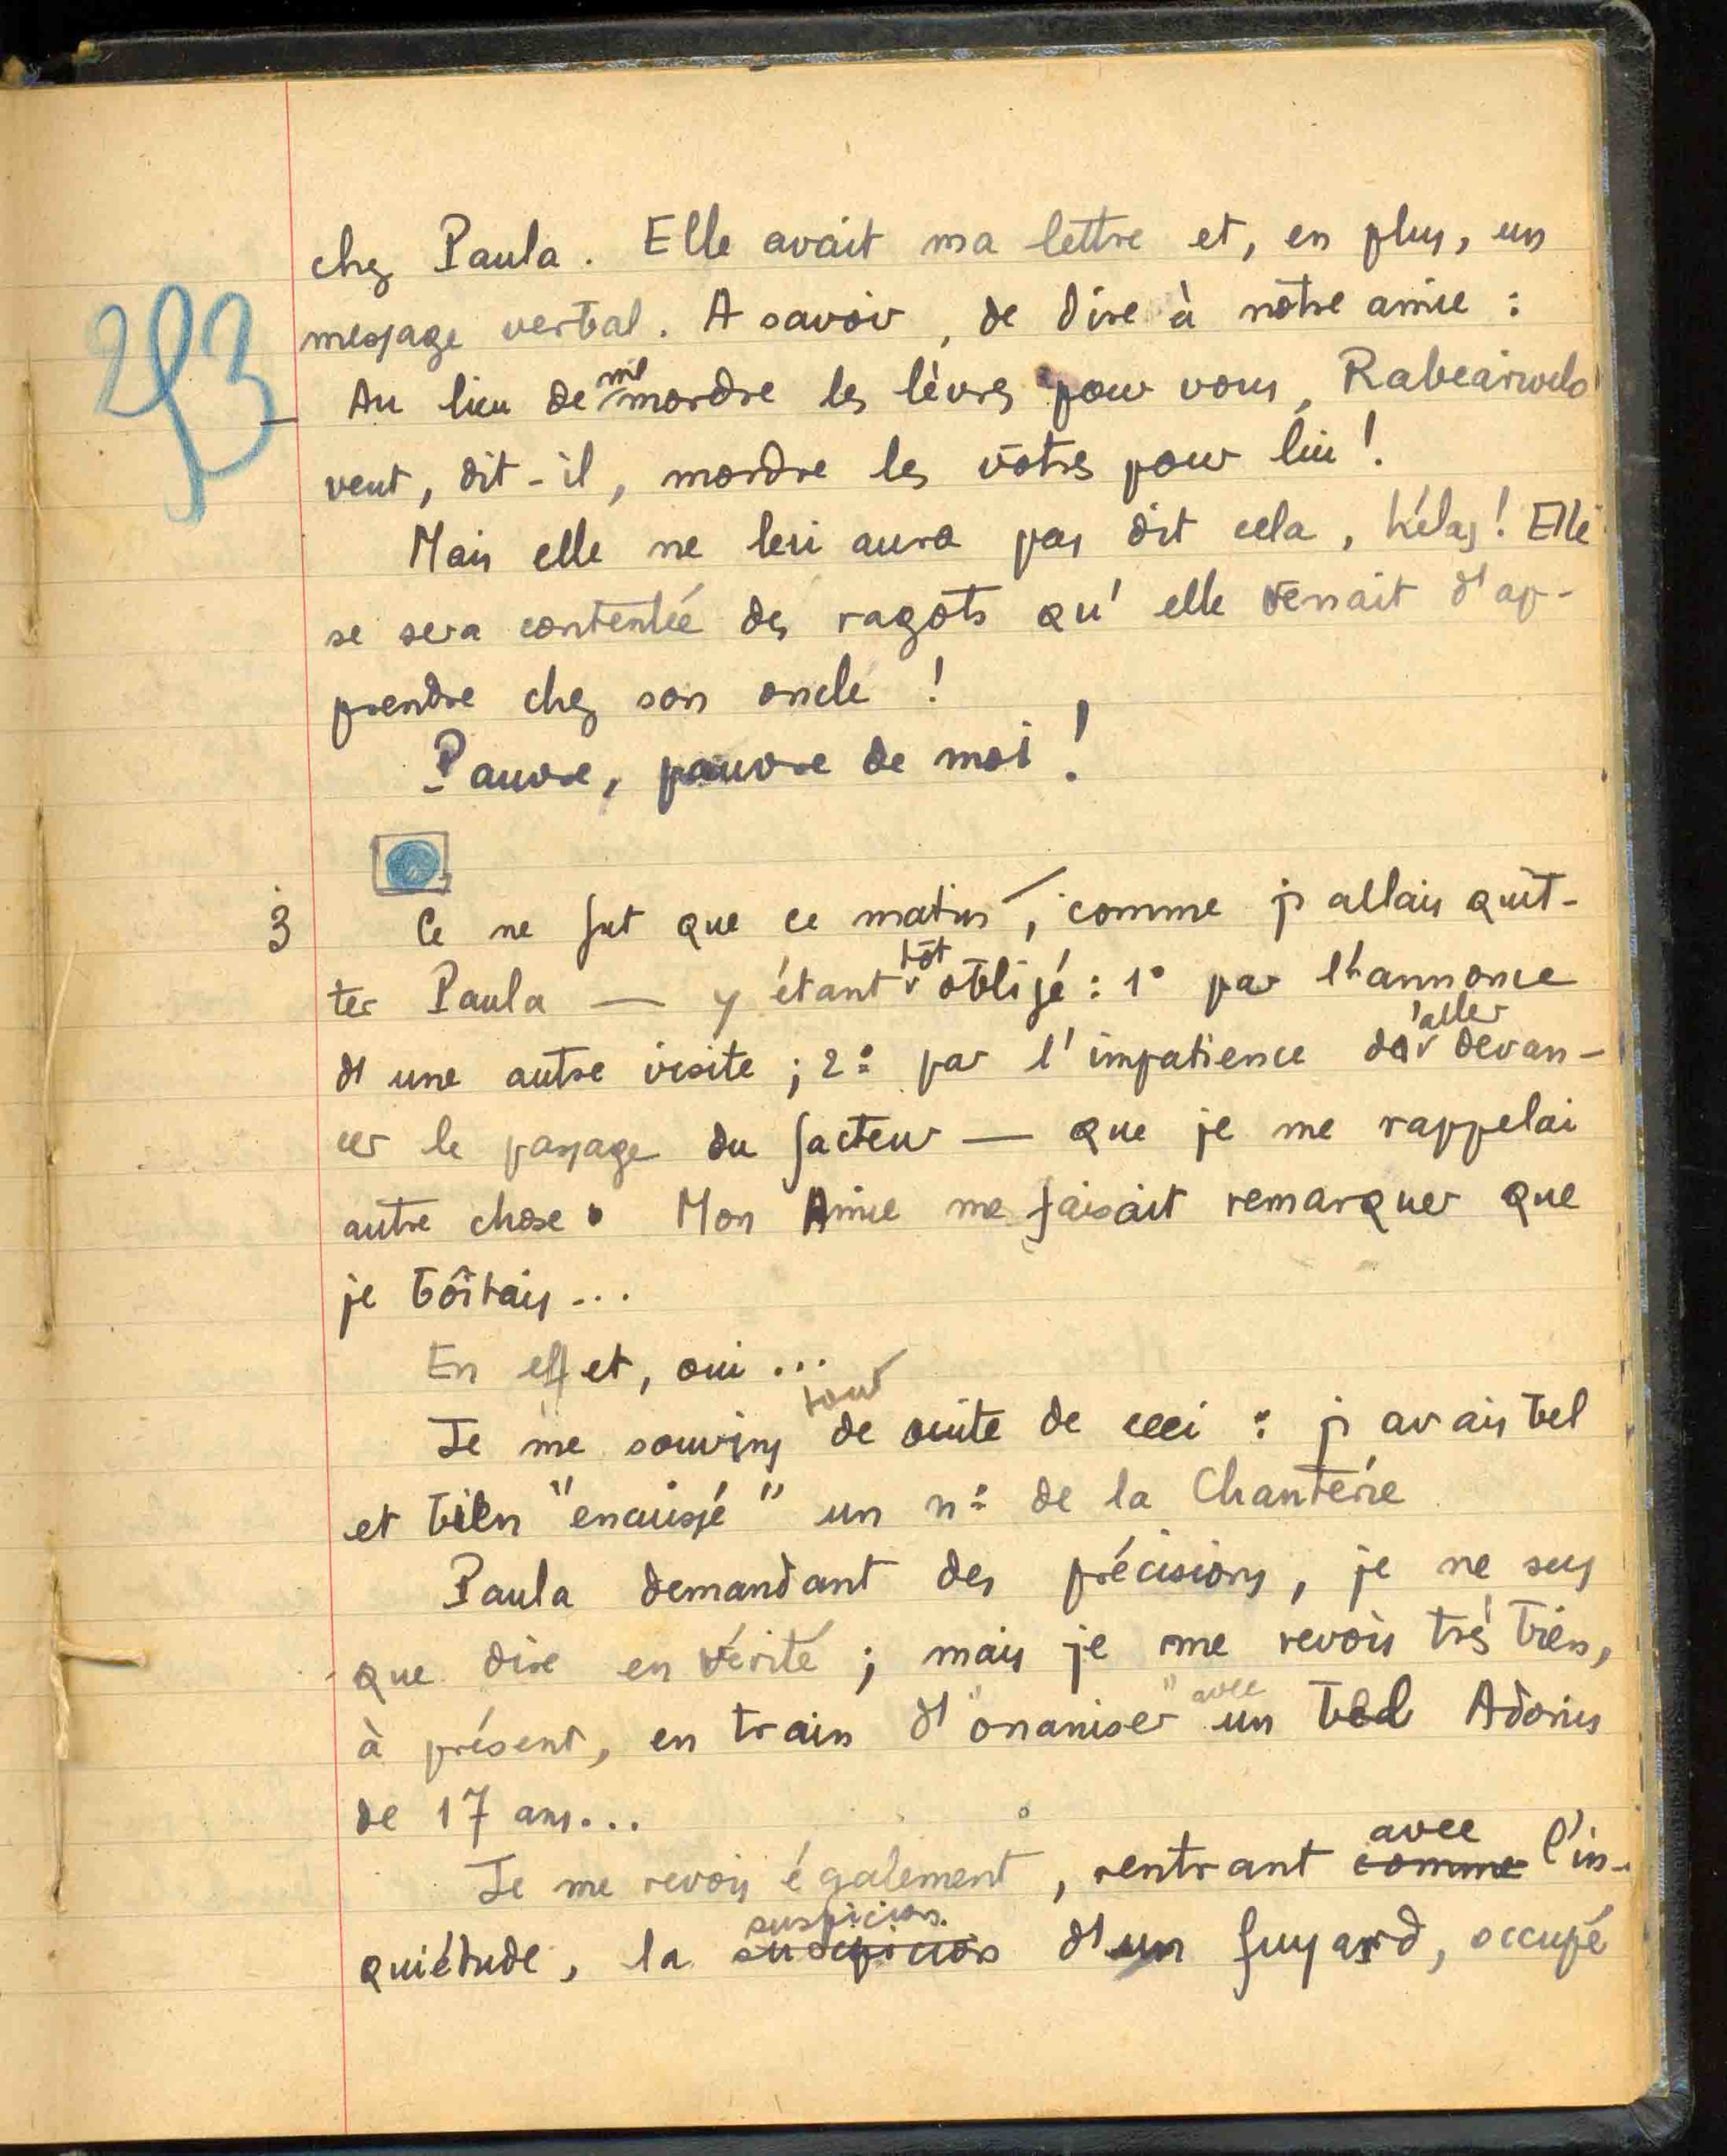 293
chez Paula. Elle avait ma lettre et, en plus, un
message verbal. A savoir, de dire à notre amie :
— Au lieu de me mordre les lèvres pour vous, Rabearivelo
veut, dit-il, mordre les vôtres pour lui !
Mais elle ne lui aura pas dit cela, hélas ! Elle
se sera contentée des ragots qu'elle venait d'ap-
prendre chez son oncle !
Pauvre, pauvre de moi !
3 Ce ne fut que ce matin, comme j'allais quit-
ter Paula — y étant tôt obligé : 1° par l'annonce
d'une autre visite ; 2° par l'impatience d'aller devan-
cer le passage du facteur — que je me rappelai
autre chose. Mon Amie me faisait remarquer que
je boîtais...
En effet, oui...
Je me souvins tout de suite de ceci : j'avais bel
et bien "encuissé" un n° de la Chanterie
Paula demandant des précisions, je ne sus
que dire en vérité ; mais je me revois très bien,
à présent, en train d'"onaniser" avec un bel Adonis
de 17 ans...
Je me revois également, rentrant comme avec l'in-
quiétude, la suspicion d'un fuyard, occupé